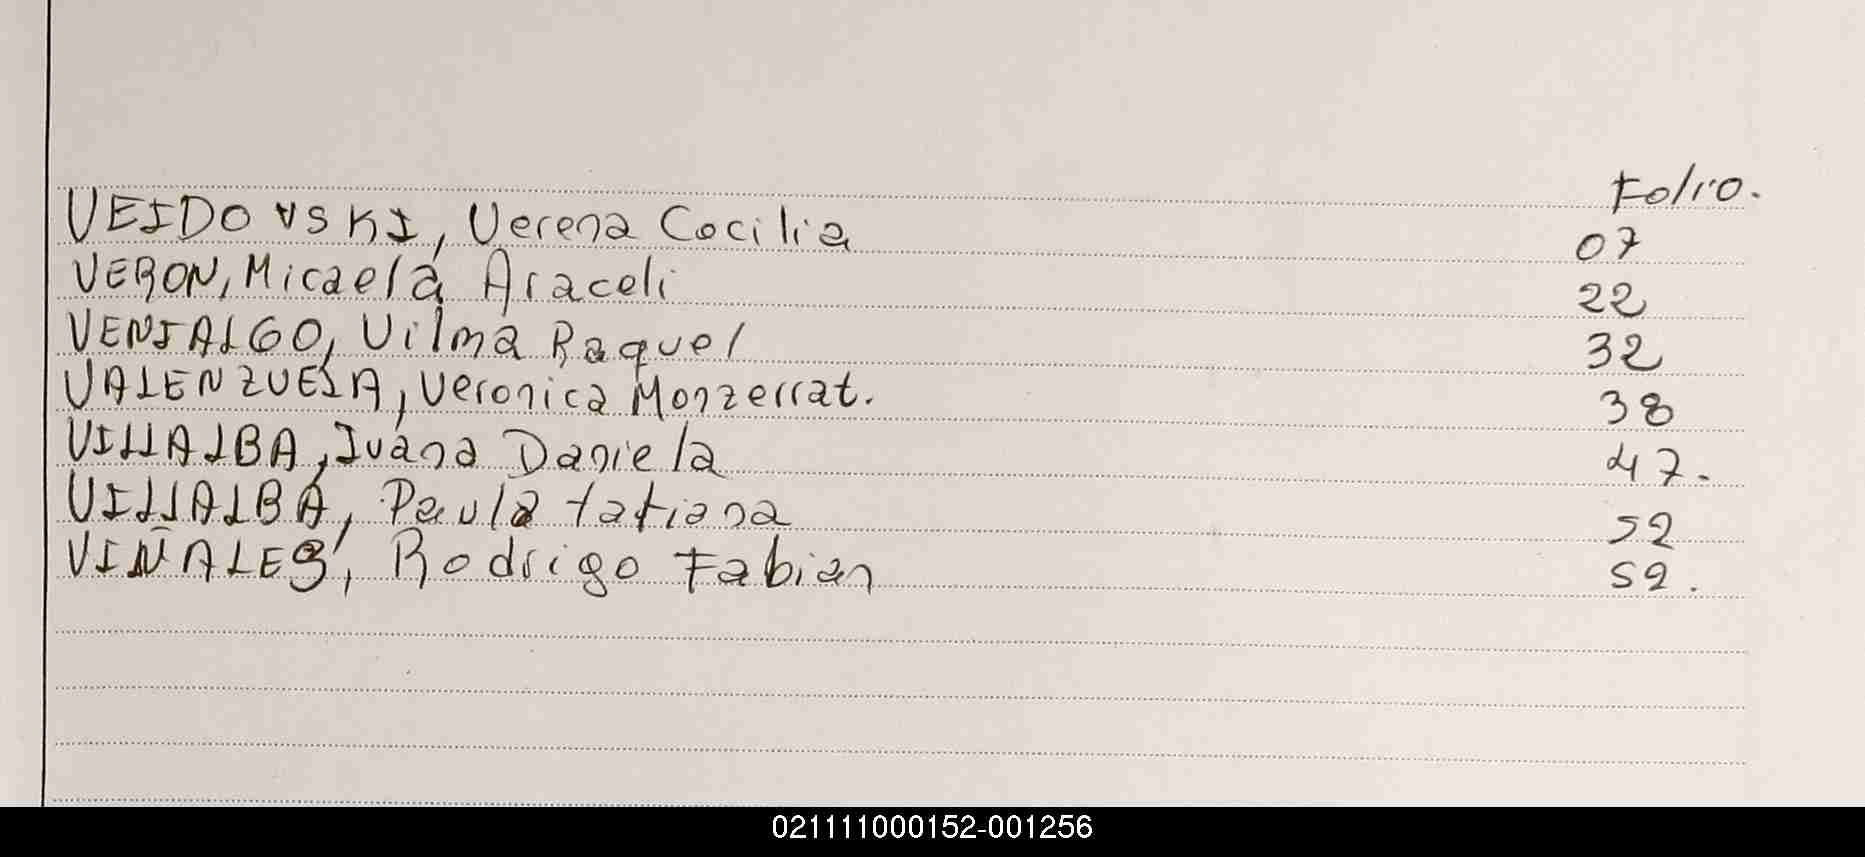 Folio.
VEIDOVSKI, Verena Cecilia 07
VERON, Micaela Araceli 22
VENIALGO, Vilma Raquel 32
VALENZUELA, Veronica Monzerrat. 38
VILLALBA, Ivana Daniela 47.
VILLALBA, Paula tatiana 52
VIÑALES, Rodrigo Fabian 52.
021111000152-001256